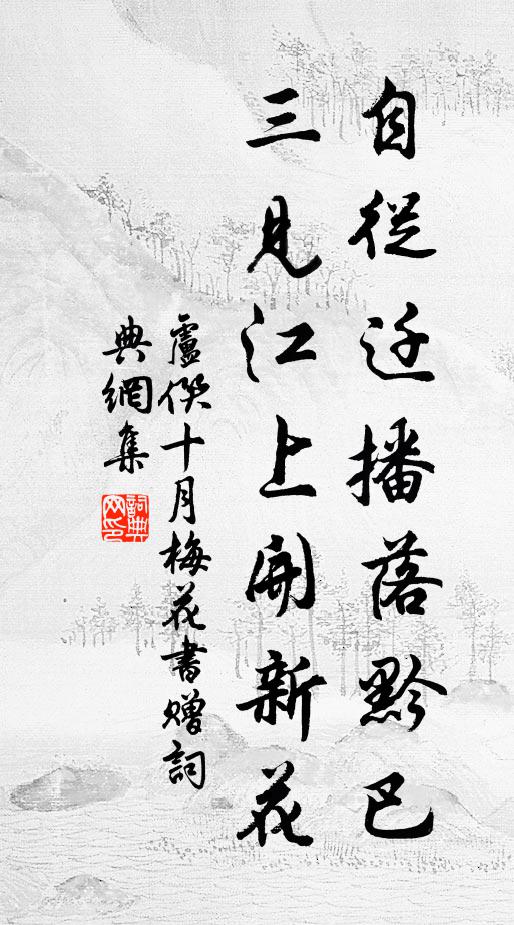 自從迁播落黔巴
三見江上開新花
盧僎十月梅花書贈詞
典網集
詞典
网印